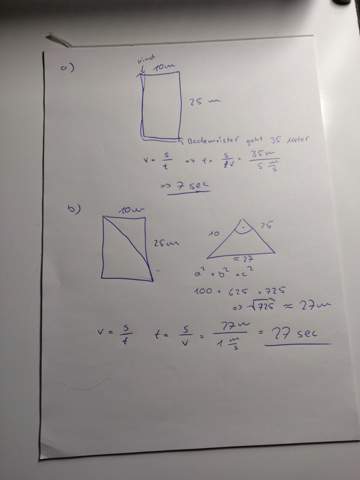 a)
Kind
10m
25 m
Bademeister geht 35 Meter
v = s/t => t = s/v = 35m / 5 m/s
=> 7 sec
b)
10m
25m
10
25
≈ 27
a² + b² = c²
100 + 625 = 725
=> √725 ≈ 27m
v = s/t t = s/v = 27m / 1 m/s = 27 sec